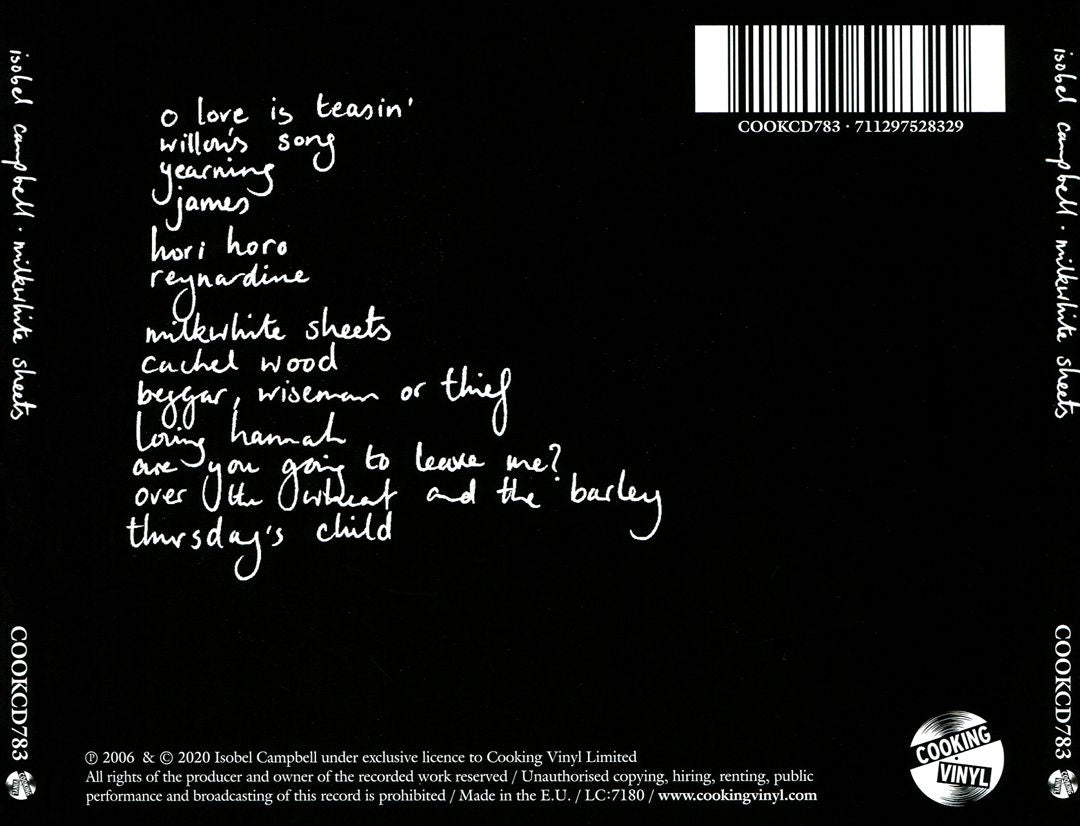 isobel campbell · milkwhite sheets
COOKCD783
COOKCD783 · 711297528329
o love is teasin'
willow's song
yearning
james
hori horo
reynardine
milkwhite sheets
cachel wood
beggar, wiseman or thief
loving hannah
are you going to leave me?
over the wheat and the barley
thursday's child
℗ 2006 & © 2020 Isobel Campbell under exclusive licence to Cooking Vinyl Limited
All rights of the producer and owner of the recorded work reserved / Unauthorised copying, hiring, renting, public
performance and broadcasting of this record is prohibited / Made in the E.U. / LC:7180 / www.cookingvinyl.com
COOKING
VINYL
isobel campbell · milkwhite sheets
COOKCD783